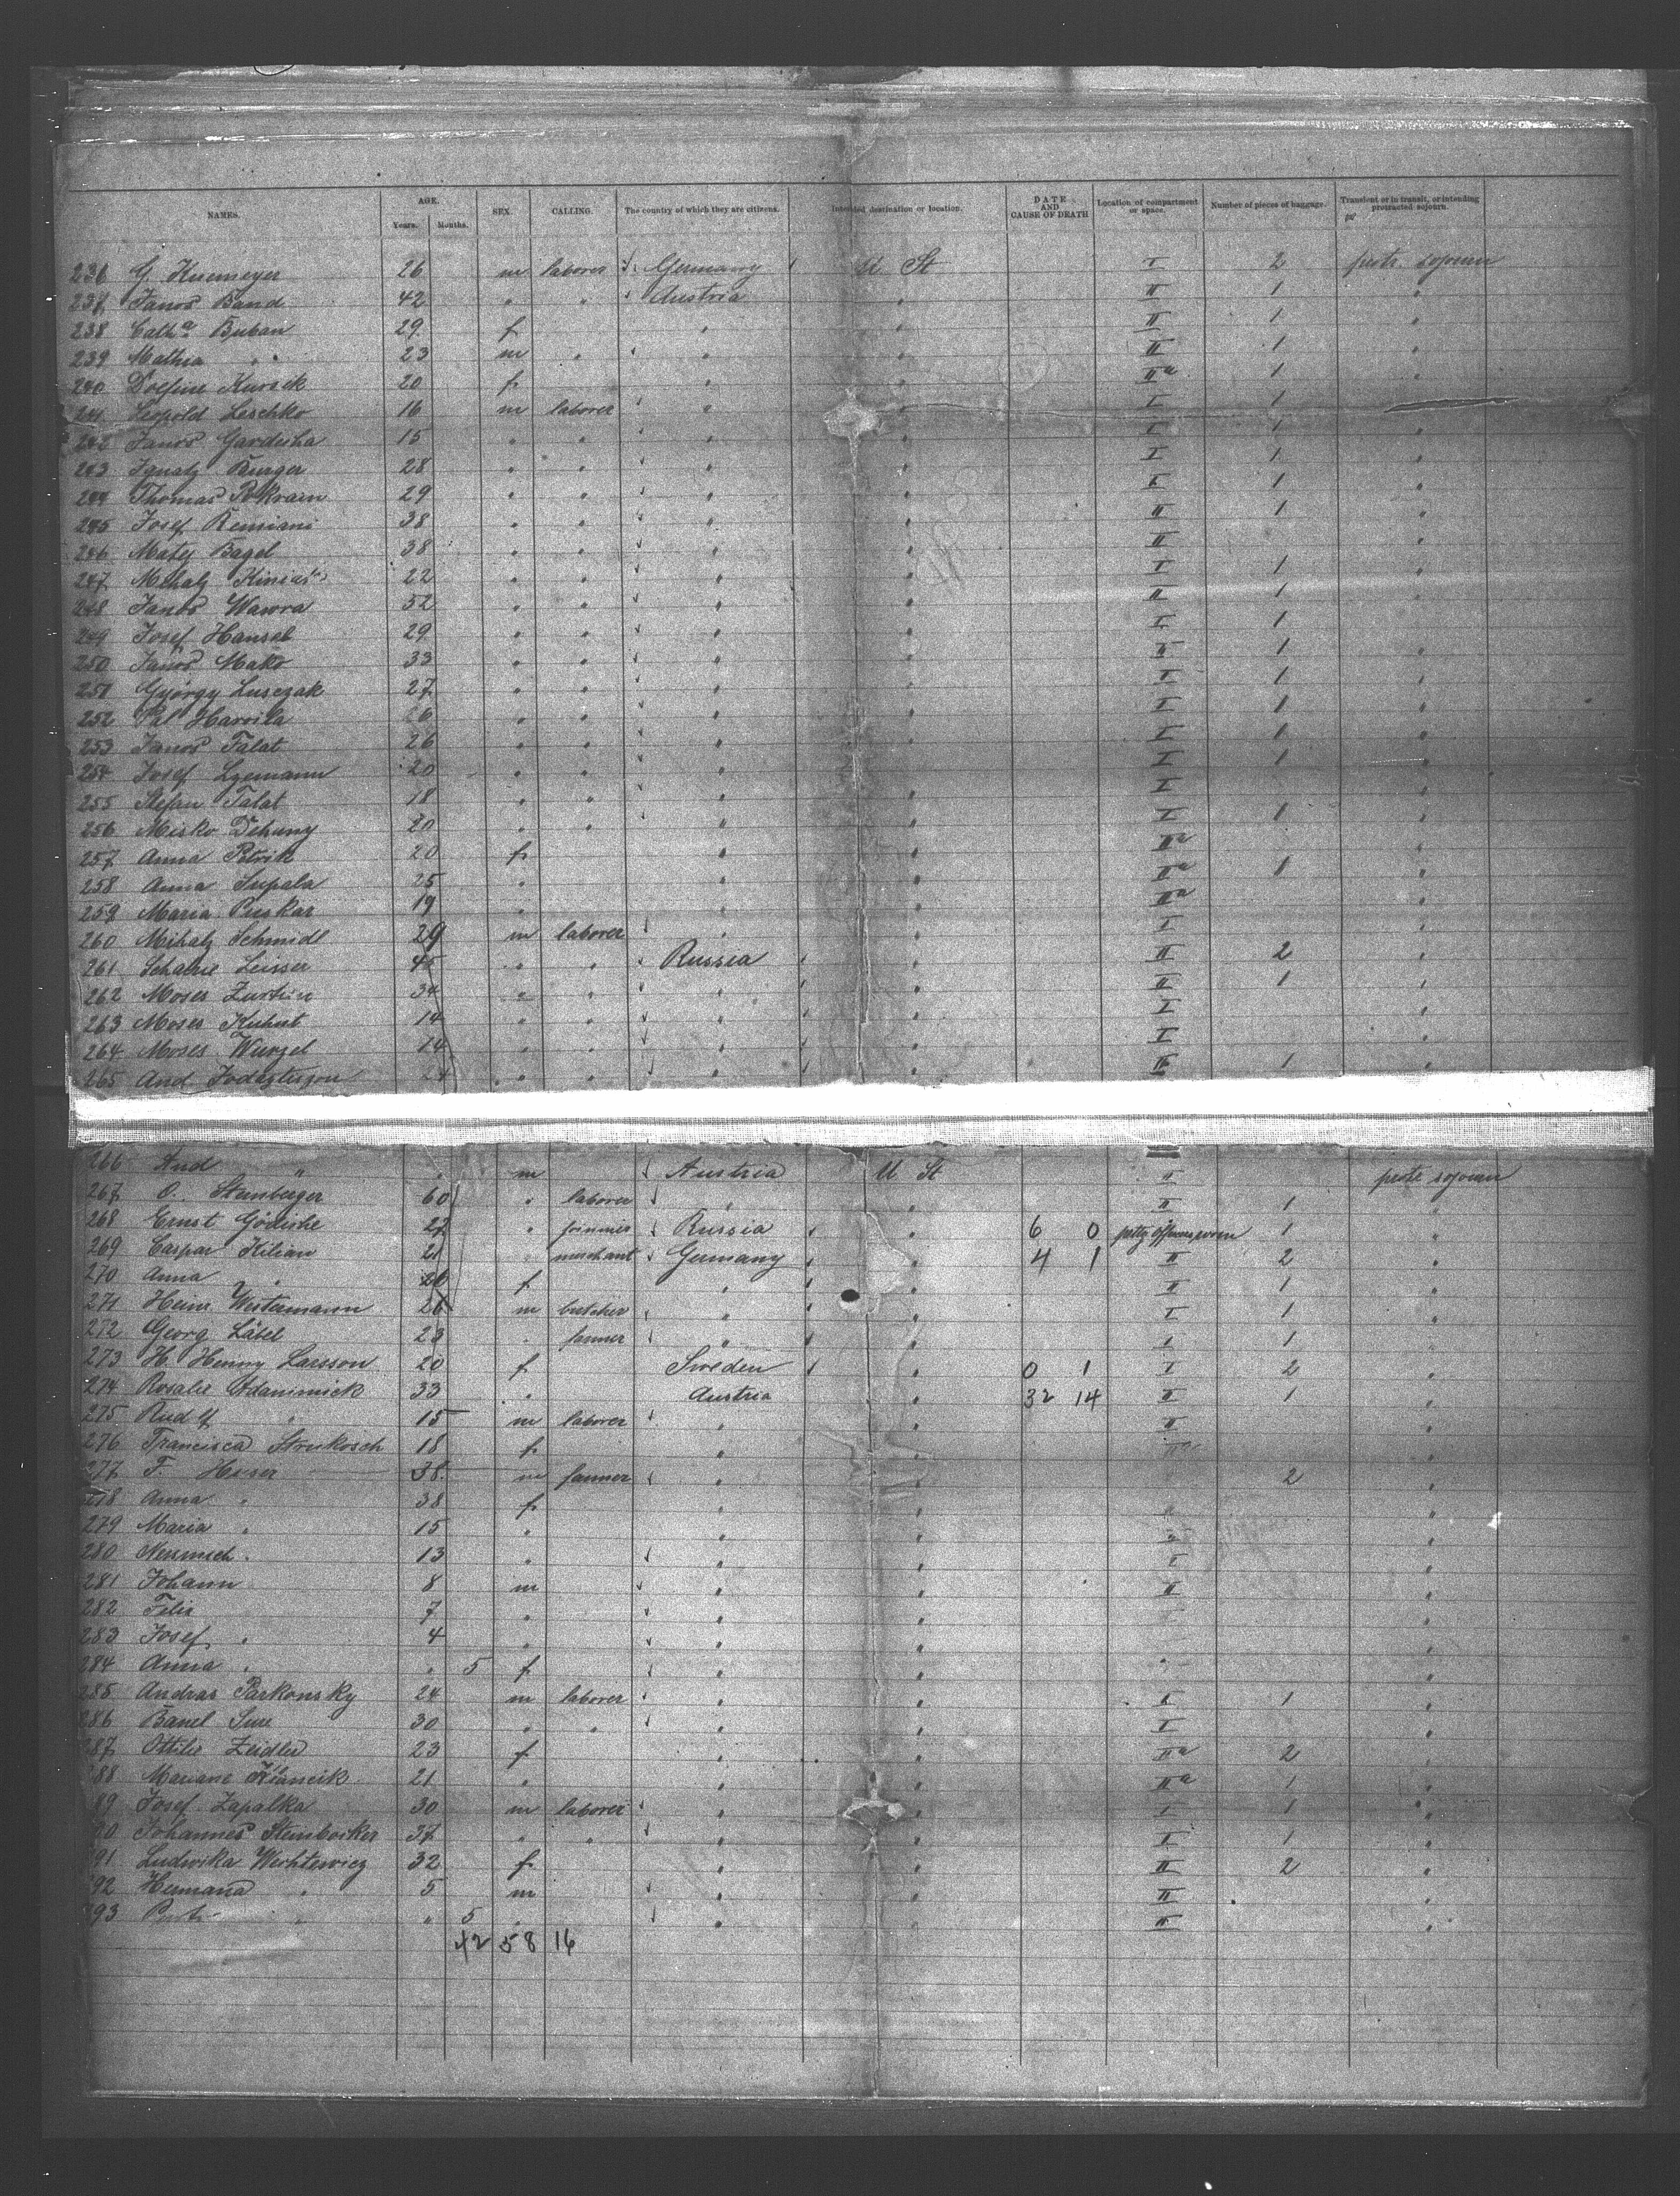 NAMES. AGE. Years. Months. SEX. CALLING. The country of which they are citizens. Intended destination or location. DATE AND CAUSE OF DEATH Location of compartment or space. Number of pieces of baggage. Transient or in transit, or intending protracted sojourn.
236 G. Kuemeyer 26 m laborer Germany U St I 2 protr. sojourn
237 Janos Band 42 " " Austria " II 1 "
238 Cath.a Buban 29 f " " II 1 "
239 Mathia " 23 m " " " II 1 "
240 Kursik 20 f " " IIa 1 "
241 Leopold Leschko 16 m laborer " " I 1
242 Janos Gardusha 15 " " " " I 1 "
243 Ignatz Burger 28 " " " " I 1 "
244 Thomas Pokram 29 " " " " I 1 "
245 Josef Remiani 38 " " " " II 1 "
246 Matej Bagel 38 " " " " II "
247 Mihaly 22 " " " " I 1 "
248 Janos Wawra 52 " " " " II 1 "
249 Josef Hansel 29 " " " " I 1
250 Janos Mako 33 " " " " II 1 "
251 György Lusczak 27 " " " " I 1 "
252 Pal Harvila 26 " " " " I 1 "
253 Janos Talat 26 " " " " I 1 "
254 Josef Lgemann 20 " " " I 1 "
255 Stefan Talat 18 " " " " I "
256 Misko Dehany 20 " " " " I 1 "
257 Anna Petrik 20 f " " IIa "
258 Anna Supala 25 " " " IIa 1 "
259 Maria Puskar 19 " " " IIa "
260 Mihaly Schmidl 29 m laborer " " I "
261 Leisser 45 " " Russia " II 2 "
262 Moses 34 " " " " II 1 "
263 Moses Kuhnt 14 " " " " I "
264 Moses Wurzel 14 " " " " I "
265 And " " " " II 1 "
266 And " " m Austria U St II protr sojourn
267 O. Steinberger 60 " laborer " " II 1 "
268 Ernst Gödishe 22 " Russia " 6 0 1 "
269 Caspar Kilian 21 " merchant Germany " 4 1 II 2 "
270 Anna " 26 f " " II 1 "
271 Heinr Westermann 26 m butcher " " I 1 "
272 Georg Läbel 23 " farmer " " I 1 "
273 H. Henny Larsson 20 f Sweden " 0 1 I 2 "
274 Rosalie Adamimick 33 " Austria " 32 14 II 1 "
275 Rudlf " 15 m laborer " " II "
276 Francisca Strukosch 18 f " " "
277 F. Heser 38 m farmer " " 2 "
278 Anna " 38 f " " "
279 Maria " 15 " " " "
280 " 13 " " " I "
281 Johann 8 m " " II "
282 Felix 7 " " " "
283 Josef " 4 " " " "
284 Anna " " 5 f " " "
285 Andras Parkonsky 24 m laborer " " I 1 "
286 Banel Sure 30 " " " " I "
287 Ottilie Zeidler 23 f " " IIa 2 "
288 Mariane 21 " " " IIa 1 "
289 Josef Zapalka 30 m laborer " " I 1 "
290 Johannes Steinbocker 37 " " " " I 1 "
291 Ludwika Wichterwicz 32 f " " II 2 "
292 Hermana " 5 m " " II "
293 " " 5 " " II "
42 58 16